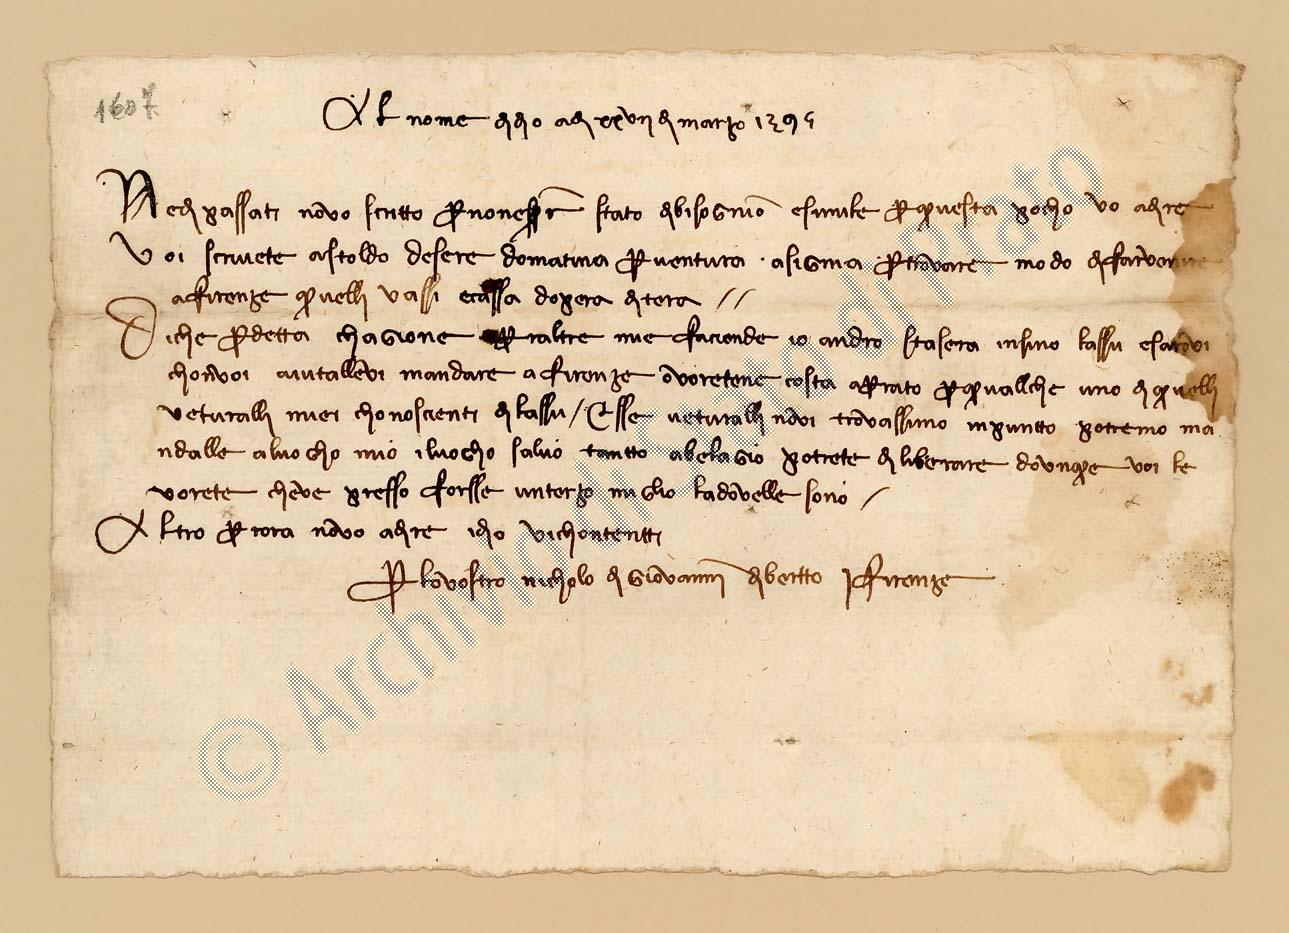 1607
Al nome di dio adi xxvii di marzo 1395
Ne di passati no vo scritto per non essere stato di bisognio e simile per questa pocho vo a dire
Voi scrivete a Stoldo d essere domatina per ventura a Signia per trovare modo di far venire
a Firenze quelli vassi e cassa d opera di tera //
Di che per detta chagione per altre mie faciende io andrò stasera insino lassù e sarovi
chon voi aiutallevi mandare a Firenze o voretene costa a Prato per quallche uno di quelli
veturalli miei chonoscienti di lassù / E sse veturalli no vi trovassimo in puntto potremo ma
ndalle a luocho mio i luocho salvo tantto ab elagio potrete diliberare dovunque voi le
vorete che v è presso forsse un terzo miglio la dov elle sono /
Altro per ora no vo a dire idio vi chontentti
Per lo vostro Nicholo di Giovanni di Bertto in Firenze
© Archivio di Stato di Prato